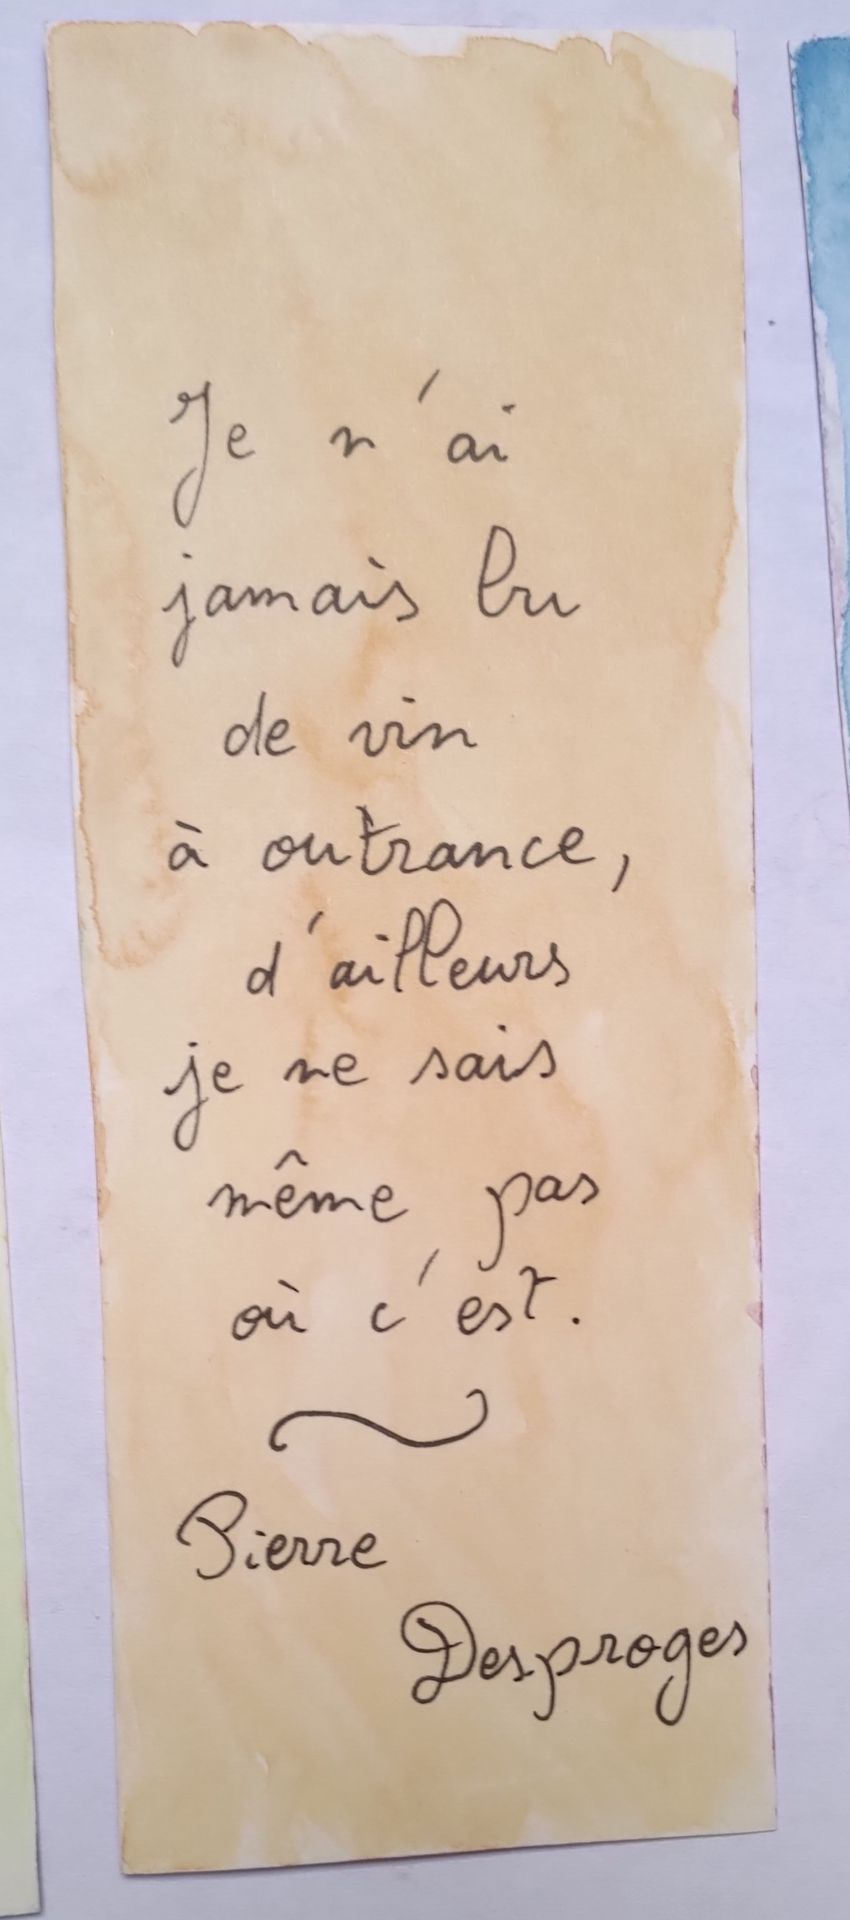 Je n'ai
jamais bu
de vin
à outrance,
d'ailleurs
je ne sais
même pas
où c'est.
Pierre
Desproges